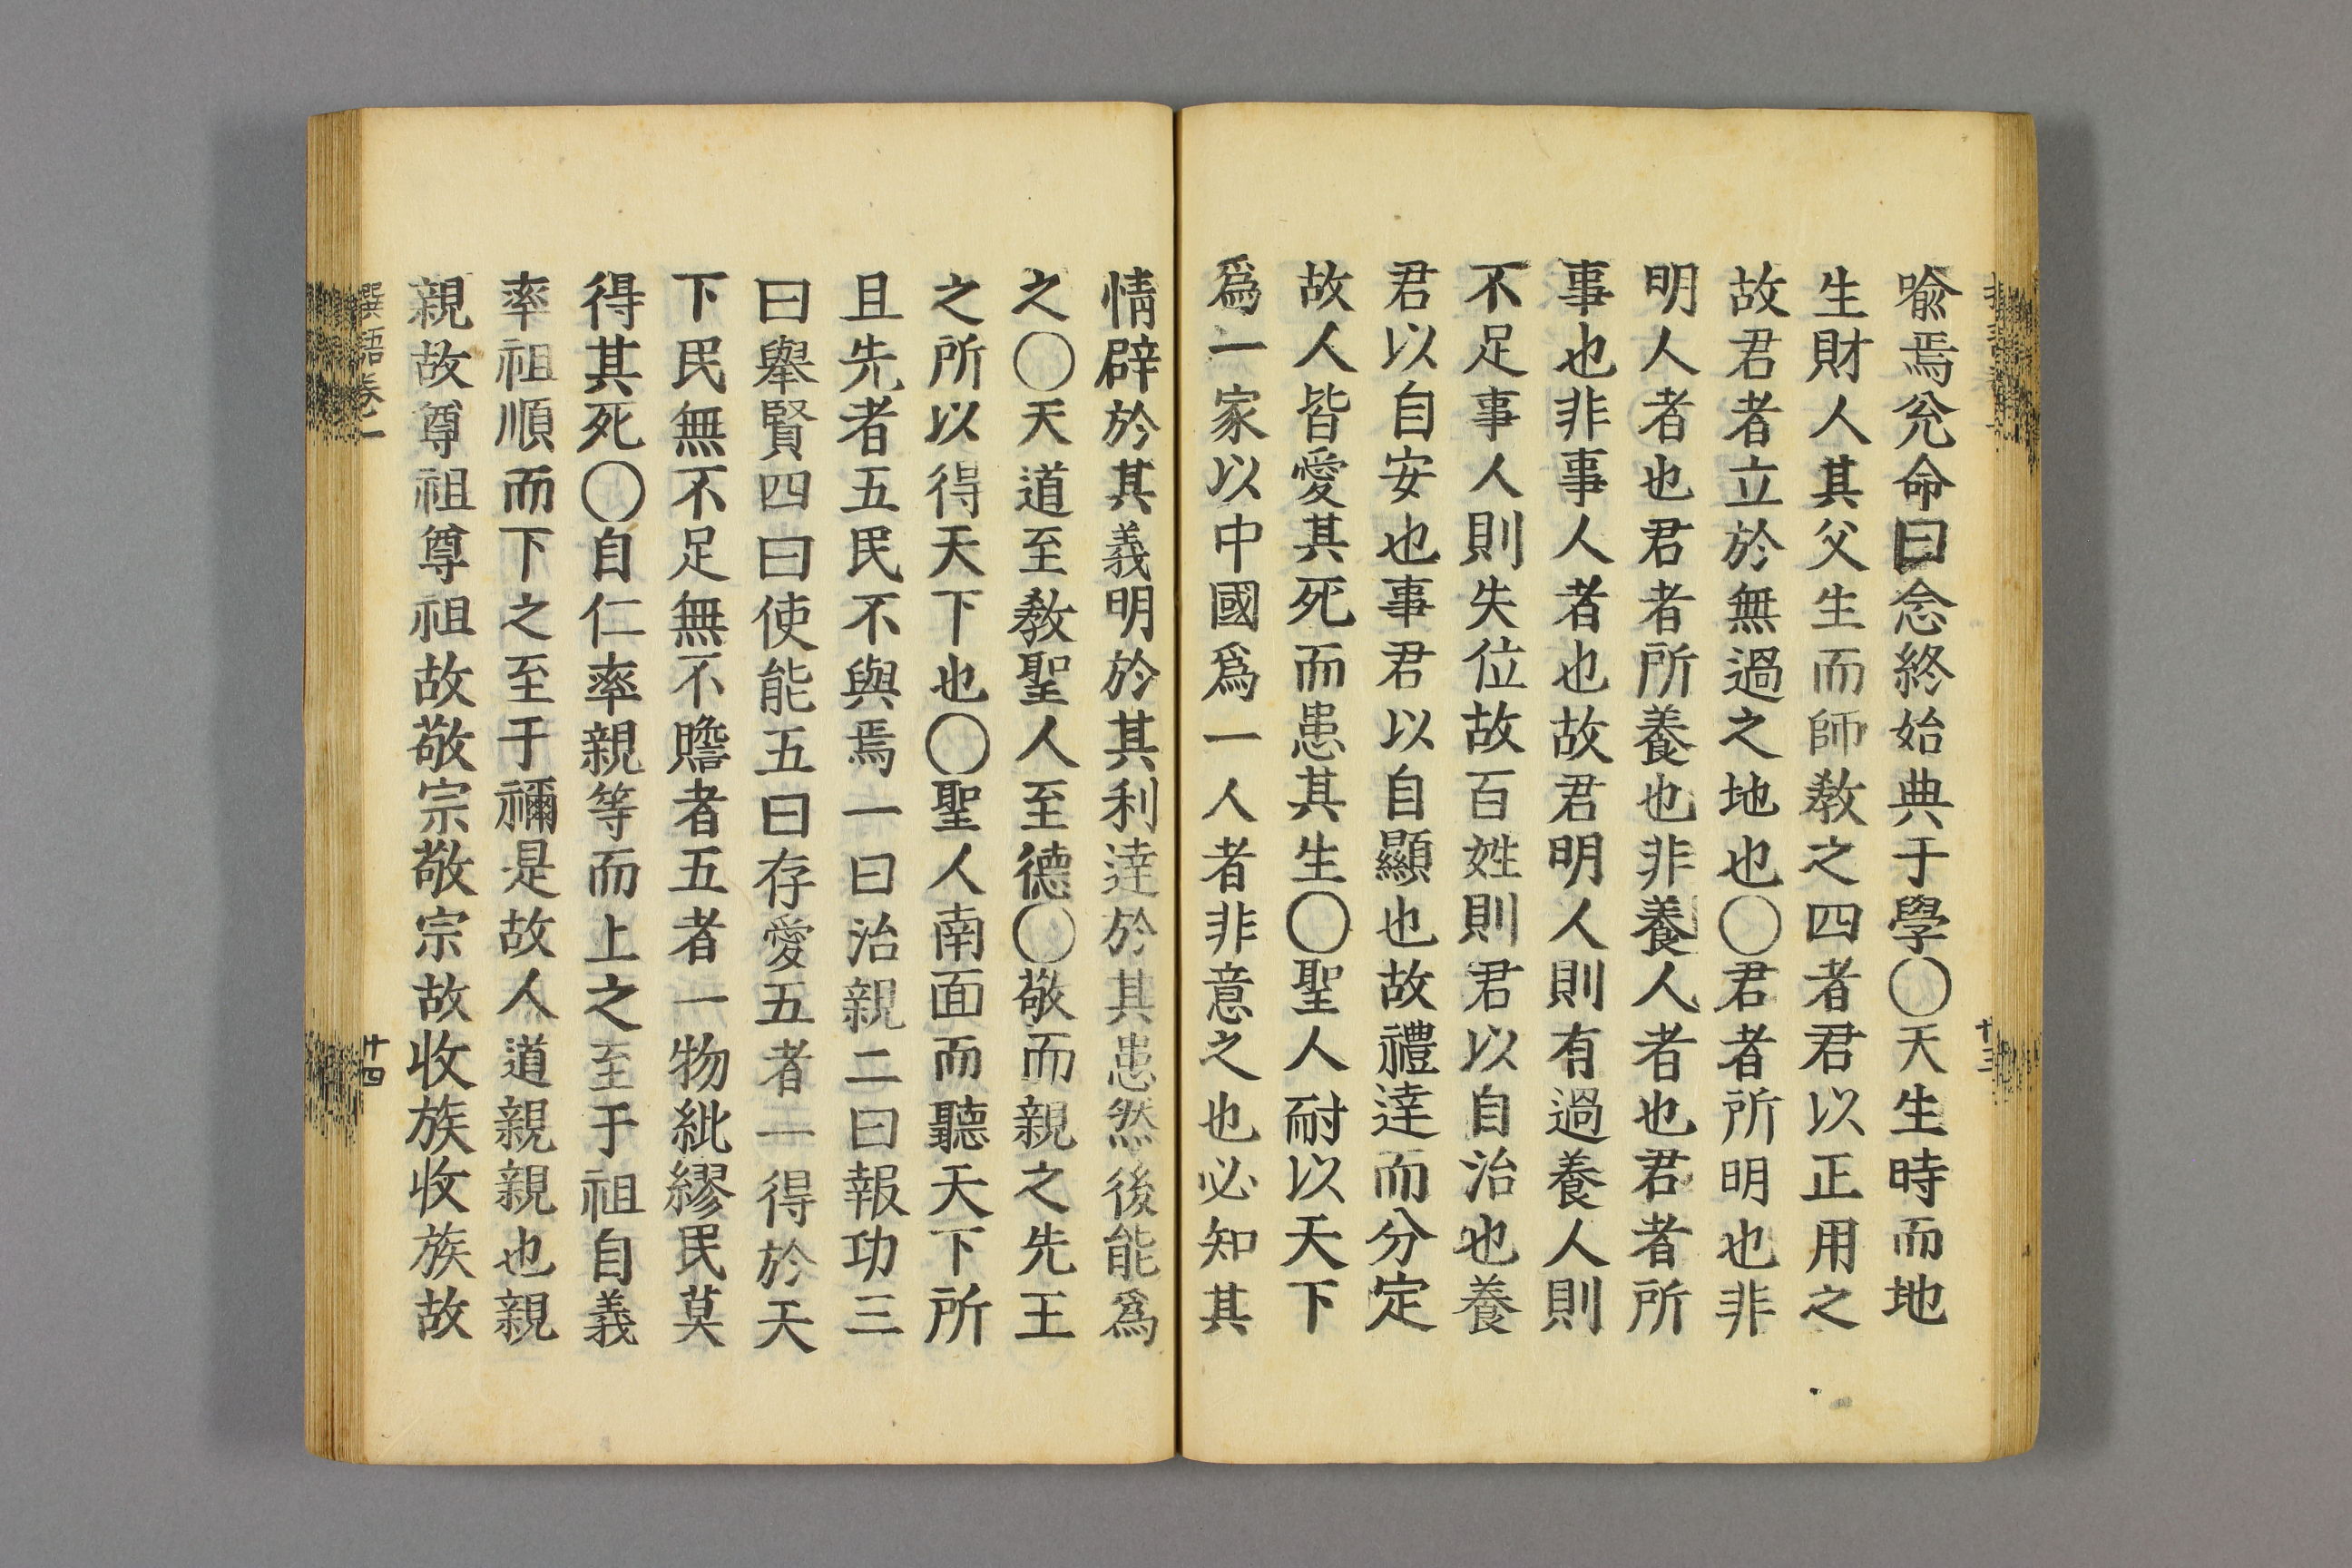 喩焉兊命曰念終始典于學〇天生時而地
生財人其父生而師敎之四者君以正用之
故君者立於無過之地也〇君者所明也非
明人者也君者所養也非養人者也君者所
事也非事人者也故君明人則有過養人則
不足事人則失位故百姓則君以自治也養
君以自安也事君以自顯也故禮達而分定
故人皆愛其死而患其生〇聖人耐以天下
爲一家以中國爲一人者非意之也必知其
情辟於其義明於其利達於其患然後能爲
之〇天道至敎聖人至德〇敬而親之先王
之所以得天下也〇聖人南面而聽天下所
且先者五民不與焉一曰治親二曰報功三
曰舉賢四曰使能五曰存愛五者一得於天
下民無不足無不贍者五者一物紕繆民莫
得其死〇自仁率親等而上之至于祖自義
率祖順而下之至于禰是故人道親親也親
親故尊祖尊祖故敬宗敬宗故收族收族故
撰語卷二
十四